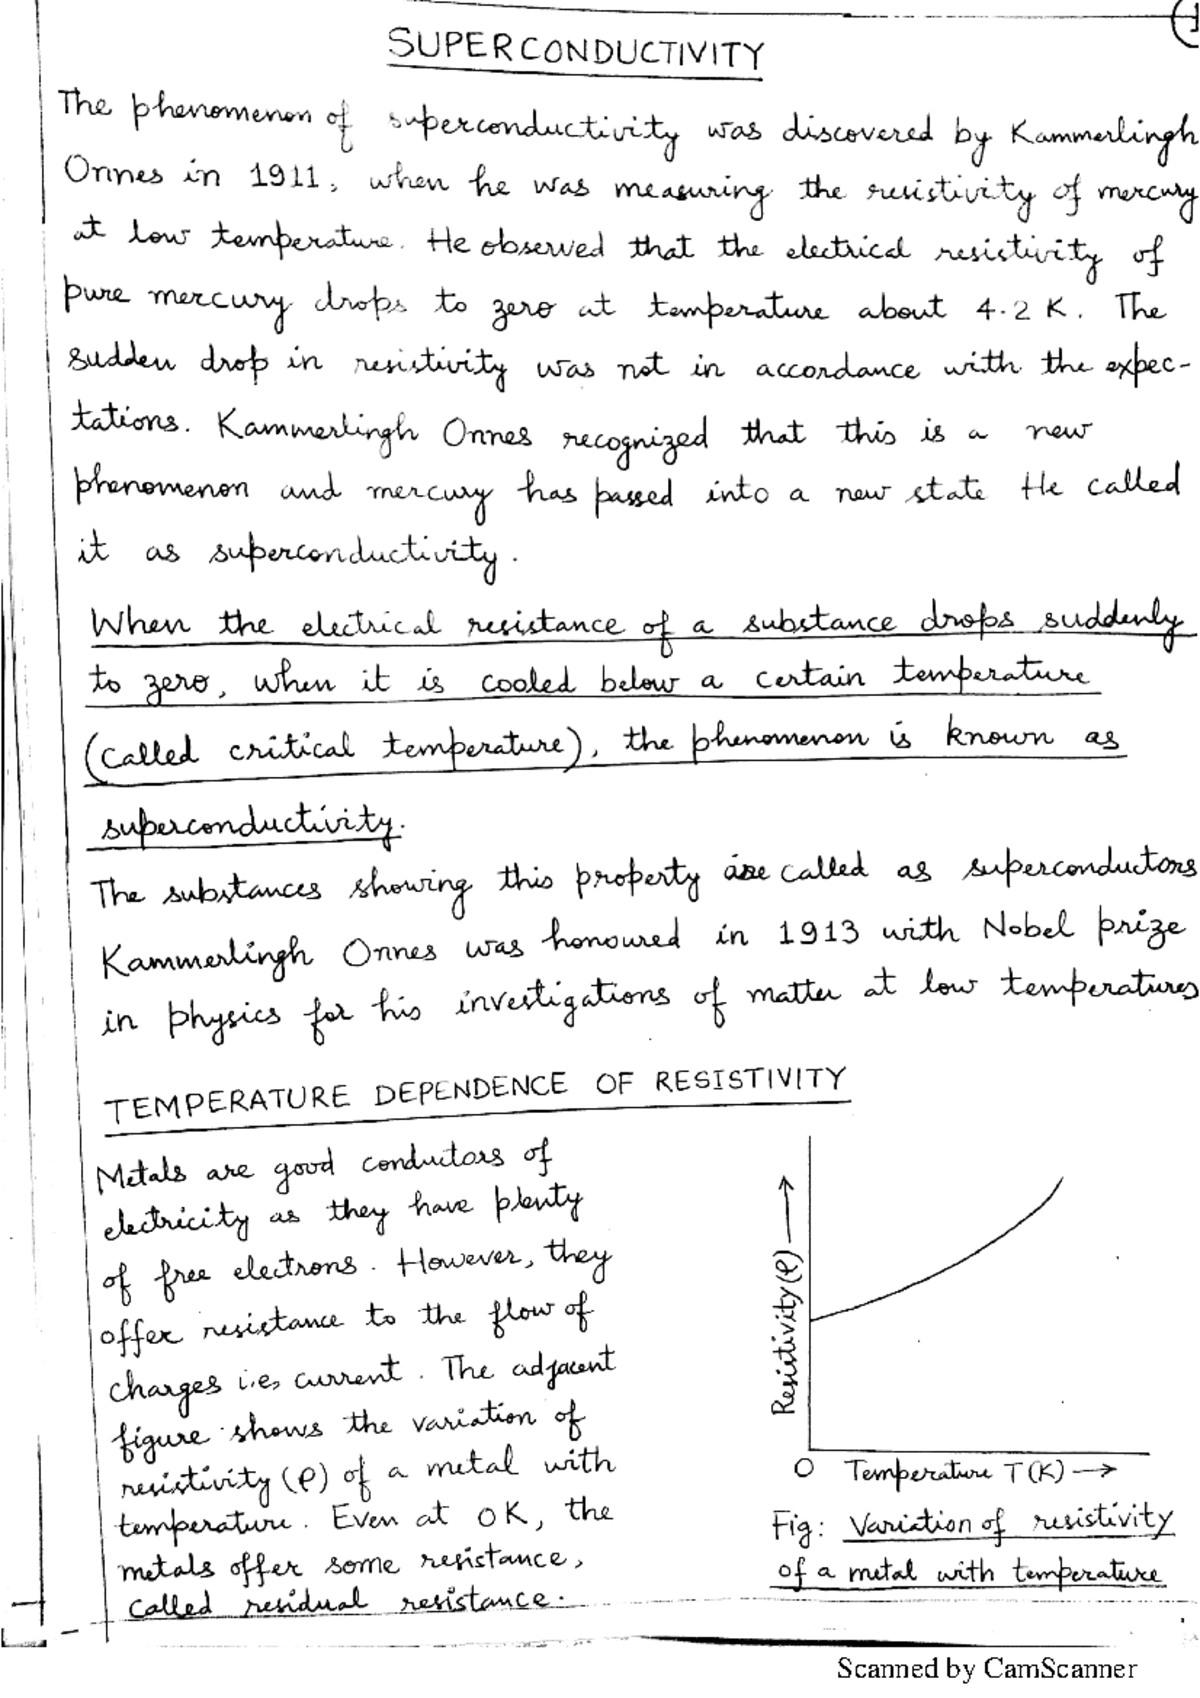 1
SUPERCONDUCTIVITY
The phenomenon of superconductivity was discovered by Kammerlingh
Onnes in 1911, when he was measuring the resistivity of mercury
at low temperature. He observed that the electrical resistivity of
pure mercury drops to zero at temperature about 4.2 K. The
sudden drop in resistivity was not in accordance with the expec-
tations. Kammerlingh Onnes recognized that this is a new
phenomenon and mercury has passed into a new state He called
it as superconductivity.
When the electrical resistance of a substance drops suddenly
to zero, when it is cooled below a certain temperature
(called critical temperature), the phenomenon is known as
superconductivity.
The substances showing this property are called as superconductors
Kammerlingh Onnes was honoured in 1913 with Nobel prize
in physics for his investigations of matter at low temperatures
TEMPERATURE DEPENDENCE OF RESISTIVITY
Metals are good conductors of
electricity as they have plenty
of free electrons. However, they
offer resistance to the flow of
charges i.e, current. The adjacent
figure shows the variation of
resistivity (ρ) of a metal with
temperature. Even at 0K, the
metals offer some resistance,
called residual resistance.
Resistivity (ρ) →
O Temperature T (K) →
Fig: Variation of resistivity
of a metal with temperature
Scanned by CamScanner